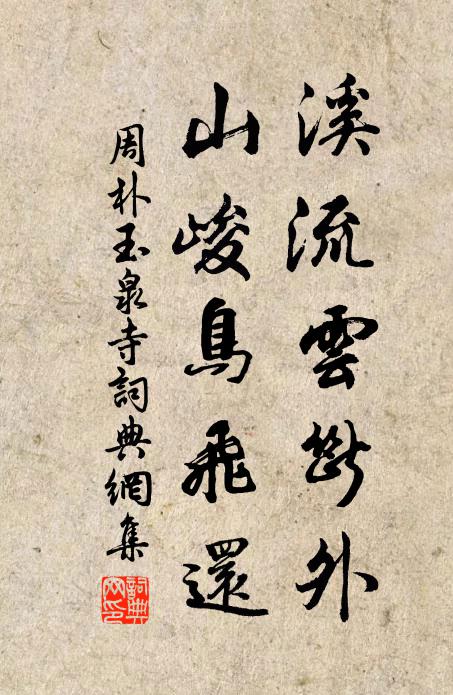 溪流雲斷外
山峻鳥飛還
周朴玉泉寺詞典網集
詞典網印